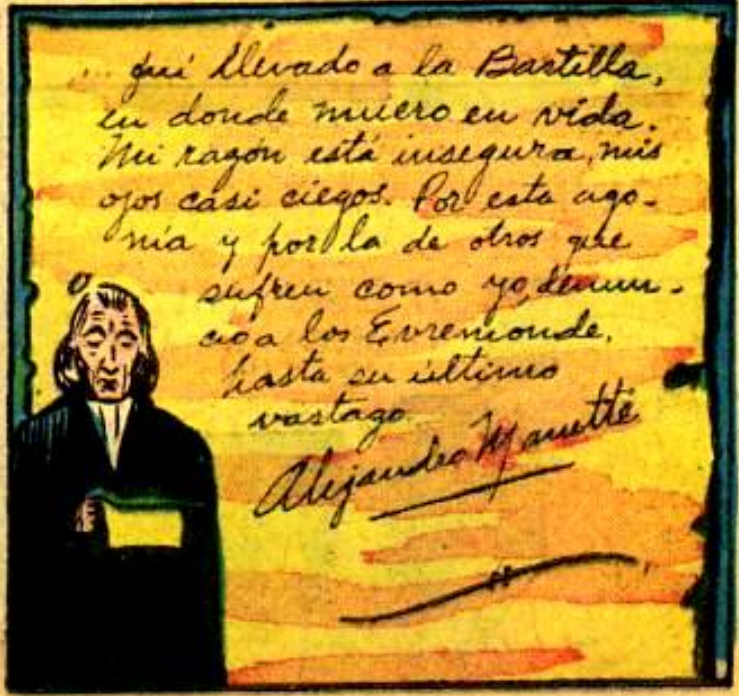 ... fuí llevado a la Bastilla,
en donde muero en vida.
Mi razón está insegura, mis
ojos casi ciegos. Por esta ago-
nía y por la de otros que
sufren como yo, denun-
cio a los Evremonde,
hasta su último
vastago.
Alejandro Manette